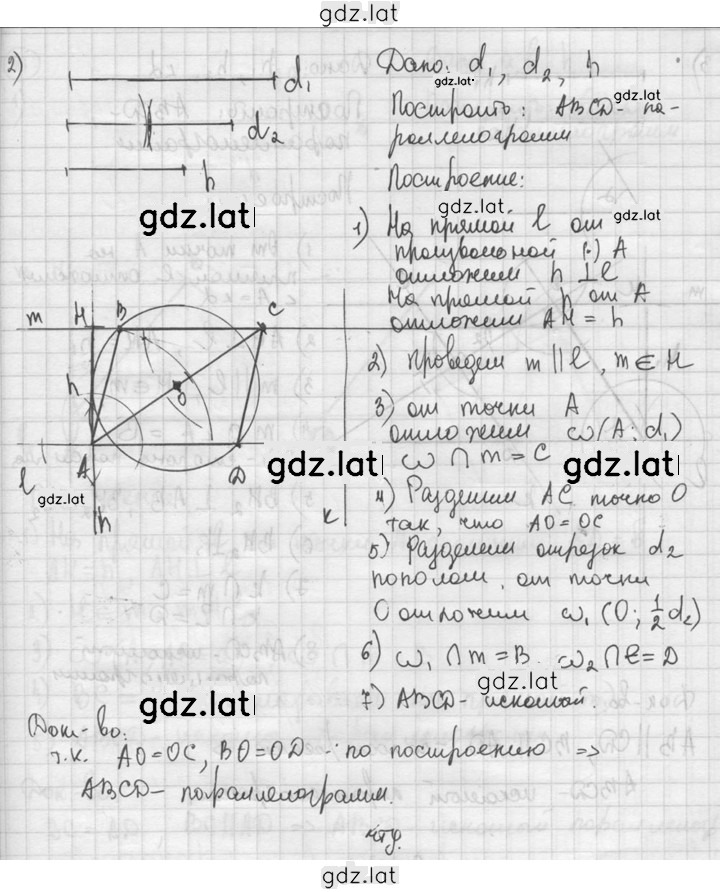 gdz.lat
2)
d₁
d₂
h
Дано: d₁, d₂, h
gdz.lat
Построить: ABCD- па-
gdz.lat
раллелограмм
Построение:
gdz.lat
gdz.lat
1) На прямой l от
gdz.lat
произвольной (·) A
отложим h ⊥ l
gdz.lat
На прямой h от A
отложим AH = h
m H B C
h O
l A D
h K
gdz.lat
gdz.lat
2) проведем m || l, m ∈ H
3) от точки A
отложим ω(A; d₁)
ω ∩ m = C
gdz.lat
gdz.lat
4) Разделим AC точкой O
так, что AO = OC
gdz.lat
5) Разделим отрезок d₂
пополам, от точки
O отложим ω₁ (O; ½d₂)
6) ω₁ ∩ m = B. ω₂ ∩ l = D
gdz.lat
gdz.lat
7) ABCD- искомый.
Док-во:
т.к. AO=OC, BO=OD - по построению =>
ABCD- параллелограмм.
чтд.
gdz.lat